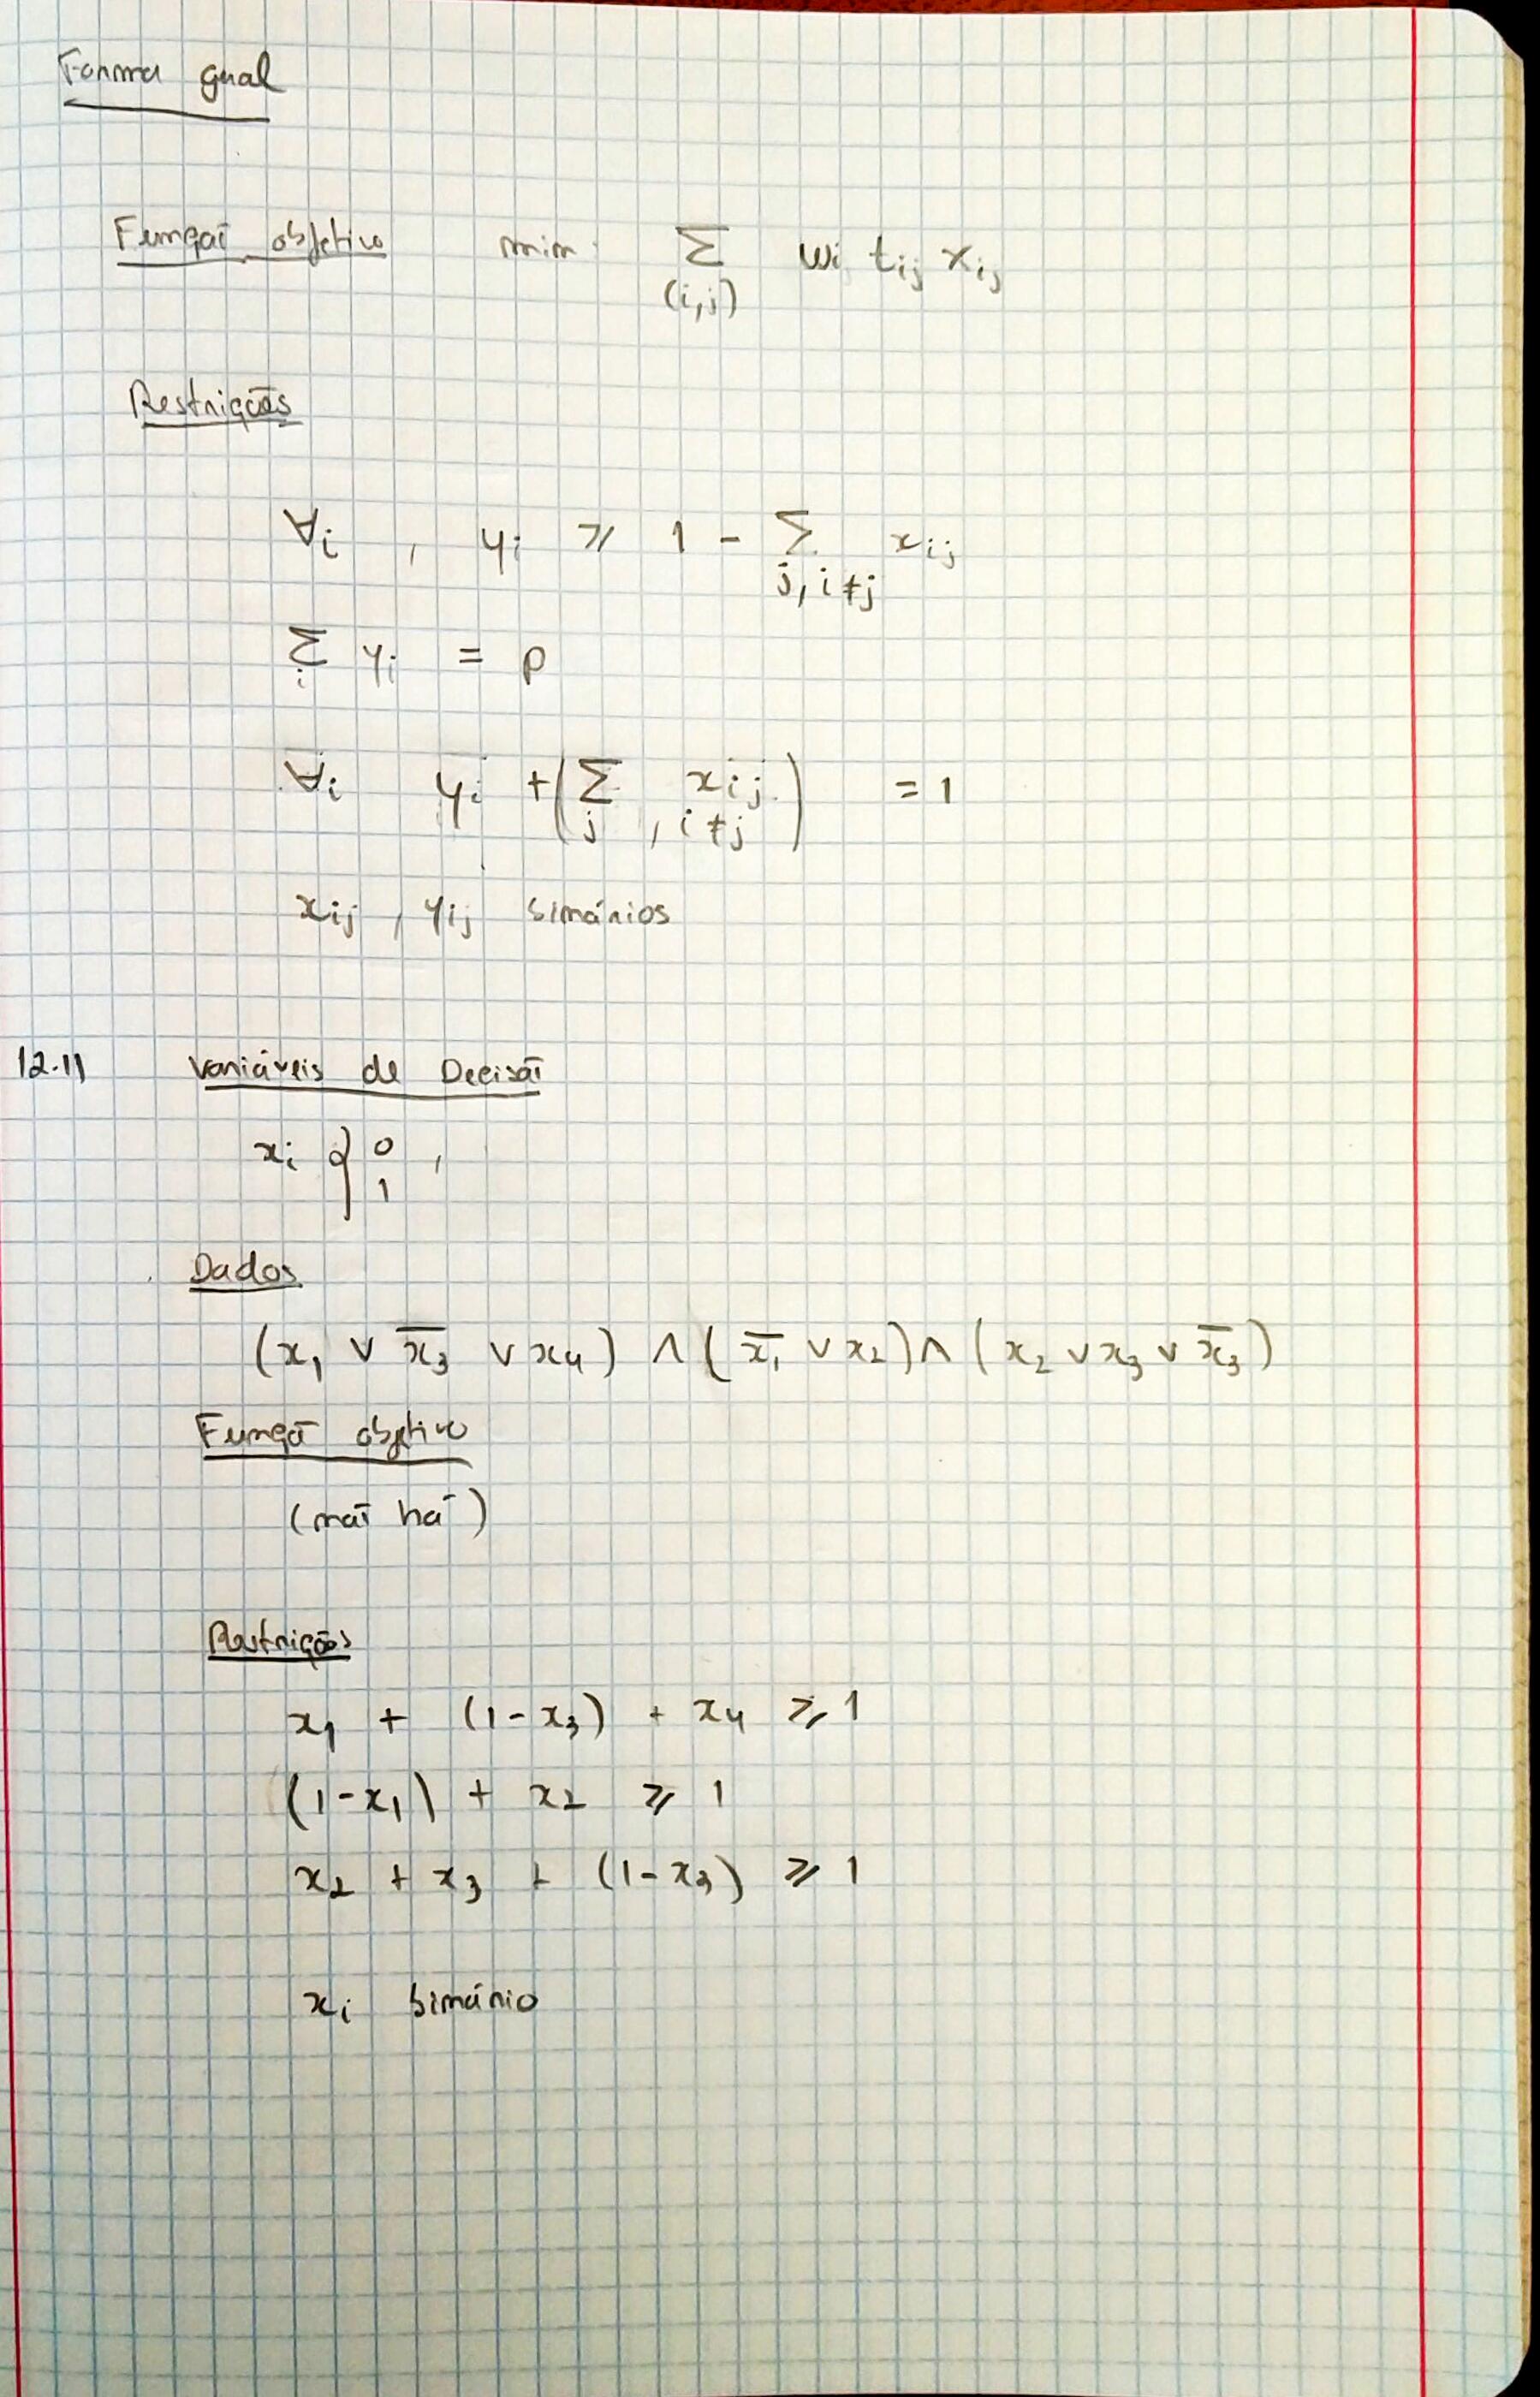 Forma geral
Função objetivo min ∑ wi tij xij
(i,j)
Restrições
∀i , yi ⩾ 1 - ∑ xij
j, i≠j
∑ yi = p
i
∀i yi + (∑ xij) = 1
j , i≠j
xij , yij binários
12.11 Variáveis de Decisão
xi { 0 ,
1
Dados
(x1 ∨ x̅3 ∨ x4) ∧ (x̅1 ∨ x2) ∧ (x2 ∨ x3 ∨ x̅3)
Função objetivo
(não há)
Restrições
x1 + (1-x3) + x4 ⩾ 1
(1-x1) + x2 ⩾ 1
x2 + x3 + (1-x3) ⩾ 1
xi binário